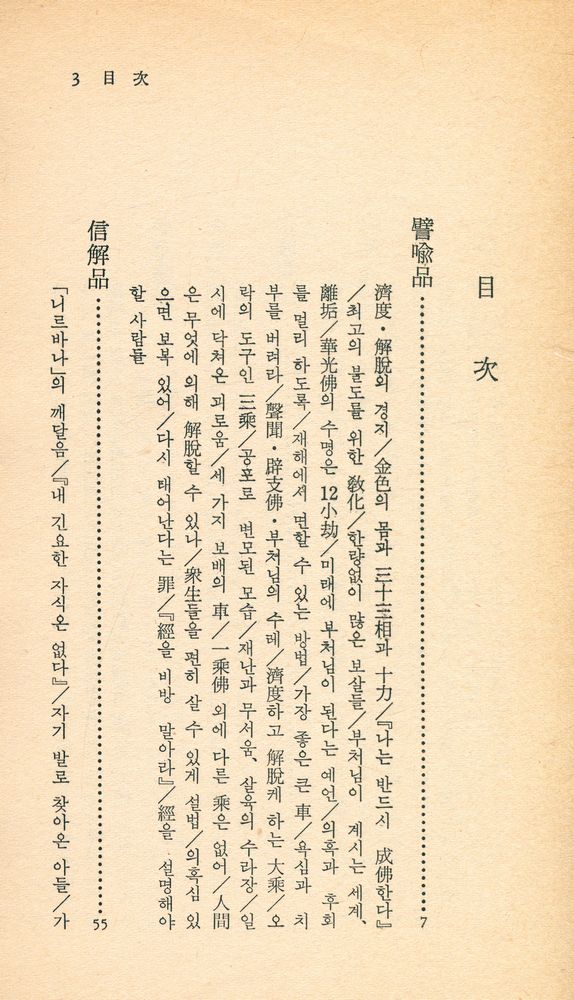 3 目 次
目 次
譬喩品……7
濟度・解脫의 경지/金色의 몸과 三十三相과 十力/『나는 반드시 成佛한다』
/최고의 불도를 위한 敎化/한량없이 많은 보살들/부처님이 계시는 세계、
離垢/華光佛의 수명은 12小劫/미래에 부처님이 된다는 예언/의혹과 후회
를 멀리 하도록/재해에서 면할 수 있는 방법/가장 좋은 큰 車/욕심과 치
부를 버려라/聲聞・辟支佛・부처님의 수레/濟度하고 解脫케 하는 大乘/오
락의 도구인 三乘/공포로 변모된 모습/재난과 무서움、살육의 수라장/일
시에 닥쳐온 괴로움/세 가지 보배의 車/一乘佛 외에 다른 乘은 없어/人間
은 무엇에 의해 解脫할 수 있나/衆生들을 편히 살 수 있게 설법/의혹심 있
으면 보복 있어/다시 태어난다는 罪/『經을 비방 말아라』/經을 설명해야
할 사람들
信解品……55
「니르바나」의 깨달음/『내 긴요한 자식은 없다』/자기 발로 찾아온 아들/가